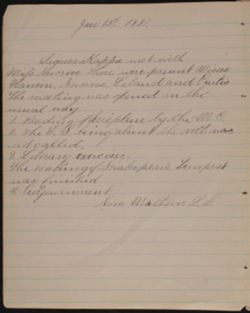 Jan 12th. 1881.
Sigma Kappa met with
Miss Norcross. There were present Misses
Hanson, Norcross, Leland and Curtis
The meeting was opened in the
usual way.
1. Reading of Scripture by the M. C.
2. The L. S. being absent the roll was
not called.
3. Literary exercise.
The reading of Shakespere's Tempest
was finished
4. Adjournment.
Nora Mathews L. S.